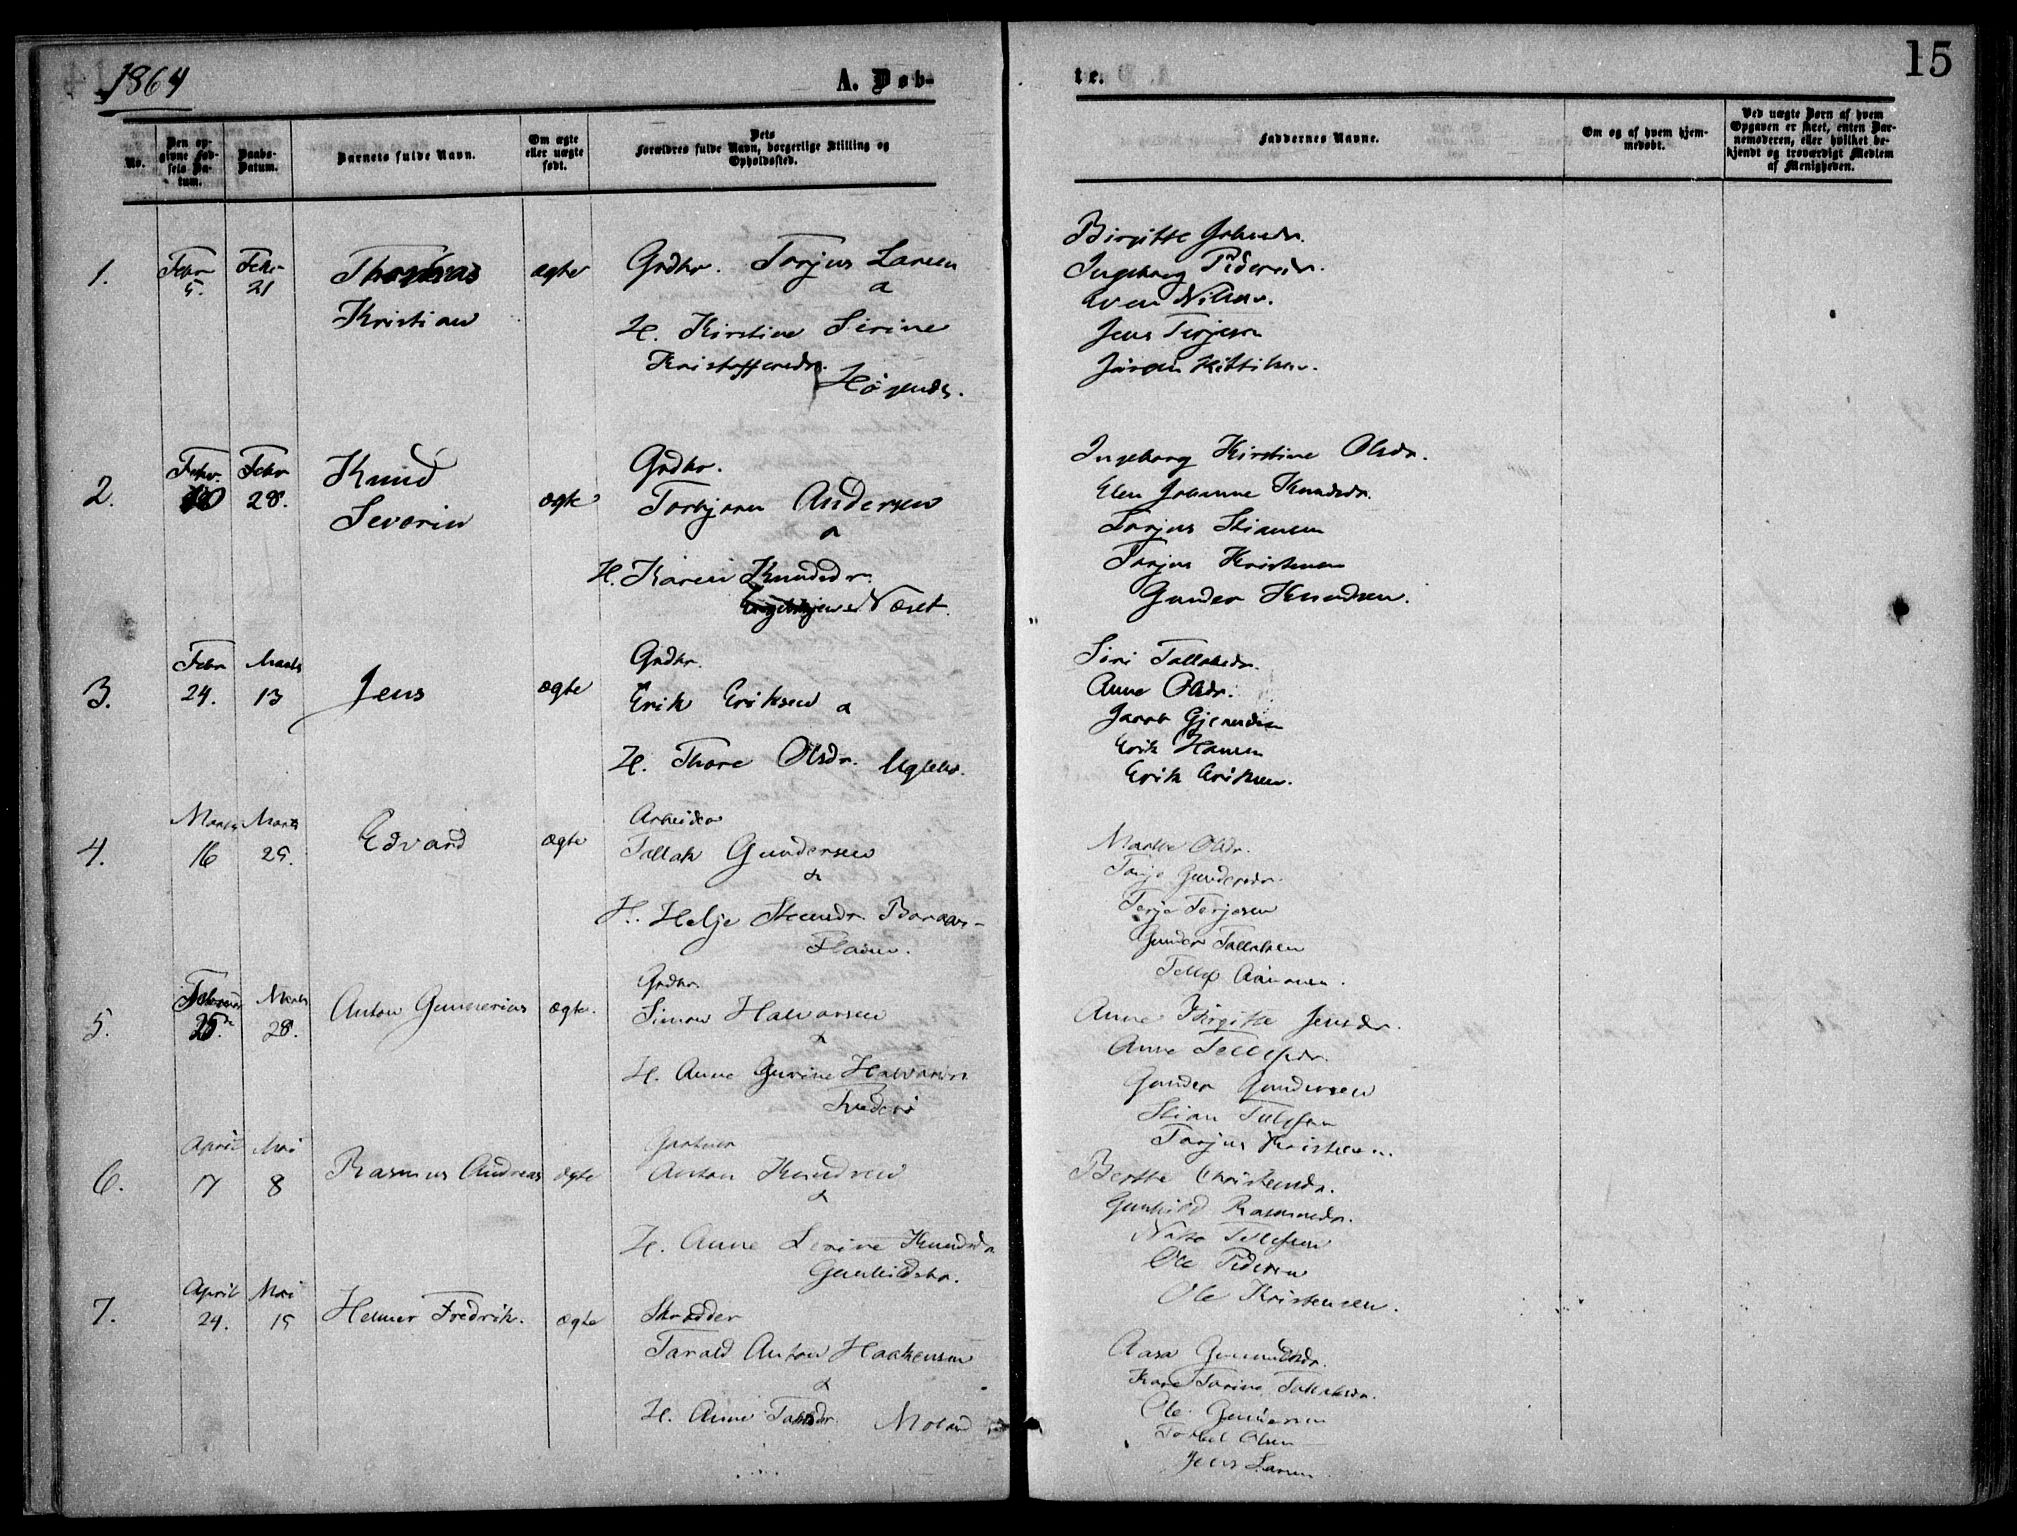 1864
A. Døb-
te.
15
No.
Den op-
givne Fød-
sels Da-
tum.
Daabs-
Datum.
Barnets fulde Navn.
Om ægte
eller uægte
født.
Dets
Forældres fulde Navn, borgerlige Stilling og
Opholdssted.
Faddernes Navne.
Om og af hvem hjem-
medøbt.
Ved uægte Børn af hvem
Opgaven er skeet, enten Bar-
nemoderen, eller hvilket be-
kjendt og troværdigt Medlem
af Menigheden.
1.
Febr
5.
Febr
21
Thomas
Kristian
ægte
Grdbr. Torjus Larsen
&
H. Kirstine Sirine
Kristoffersdr.
Birgitte
Ingeborg Pedersdr.
Even Nilsen.
Jens Terjesen
Jörgen Kittilsen.
2.
Febr.
Febr
28.
Knud
Severin
ægte
Grdbr.
Torbjørn Andersen
&
H. Karen Knudsdr.
Næset.
Ingeborg Kirstine Olsdr.
Elen Johanne Knudsdr.
Torjus Stiansen
Torjus Kristensen
Gunder Knudsen.
3.
Febr
24.
Marts
13
Jens
ægte
Grdbr.
Erik Eriksen &
H. Thore Olsdr.
Siri Tallaksdr.
Anne Olsdr.
Jacob
Erik Hansen
Erik Eriksen.
4.
Marts
16
Marts
25.
Edvard
ægte
Arbeider
Tallak Gundersen
&
H. Helje
Marthe Olsdr.
Gundersdr.
Terje Terjesen
Gunder Tallaksen
Tellef Aanonsen.
5.
Februar
25
Marts
28.
Anton Gunnerius
ægte.
Grdbr.
Simon Halvorsen
&
H. Anne Gurine Halvorsdr
Anne Birgitte Jensdr.
Anne Tellefsdr.
Gunder Gundersen
Stian Tellefsen
Torjus Kristensen.
6.
April
17
Mai
8
Rasmus Andreas
ægte
Gartner
Anton Knudsen
&
H. Anne Serine Knudsdr
Gunhildsbo.
Berthe Christensdr.
Gunhild Rasmusdr.
Tellefsen
Ole Pedersen
Ole Kristensen.
7.
April
24.
Mai
15
Helmer Fredrik.
ægte
Skrædder
Tarald Anton Haakensen
&
H. Anne
Moland
Aasa Gunnuldsdr.
Karen Torine Tallaksdr.
Ole Gundersen
Olsen
Jens Larsen